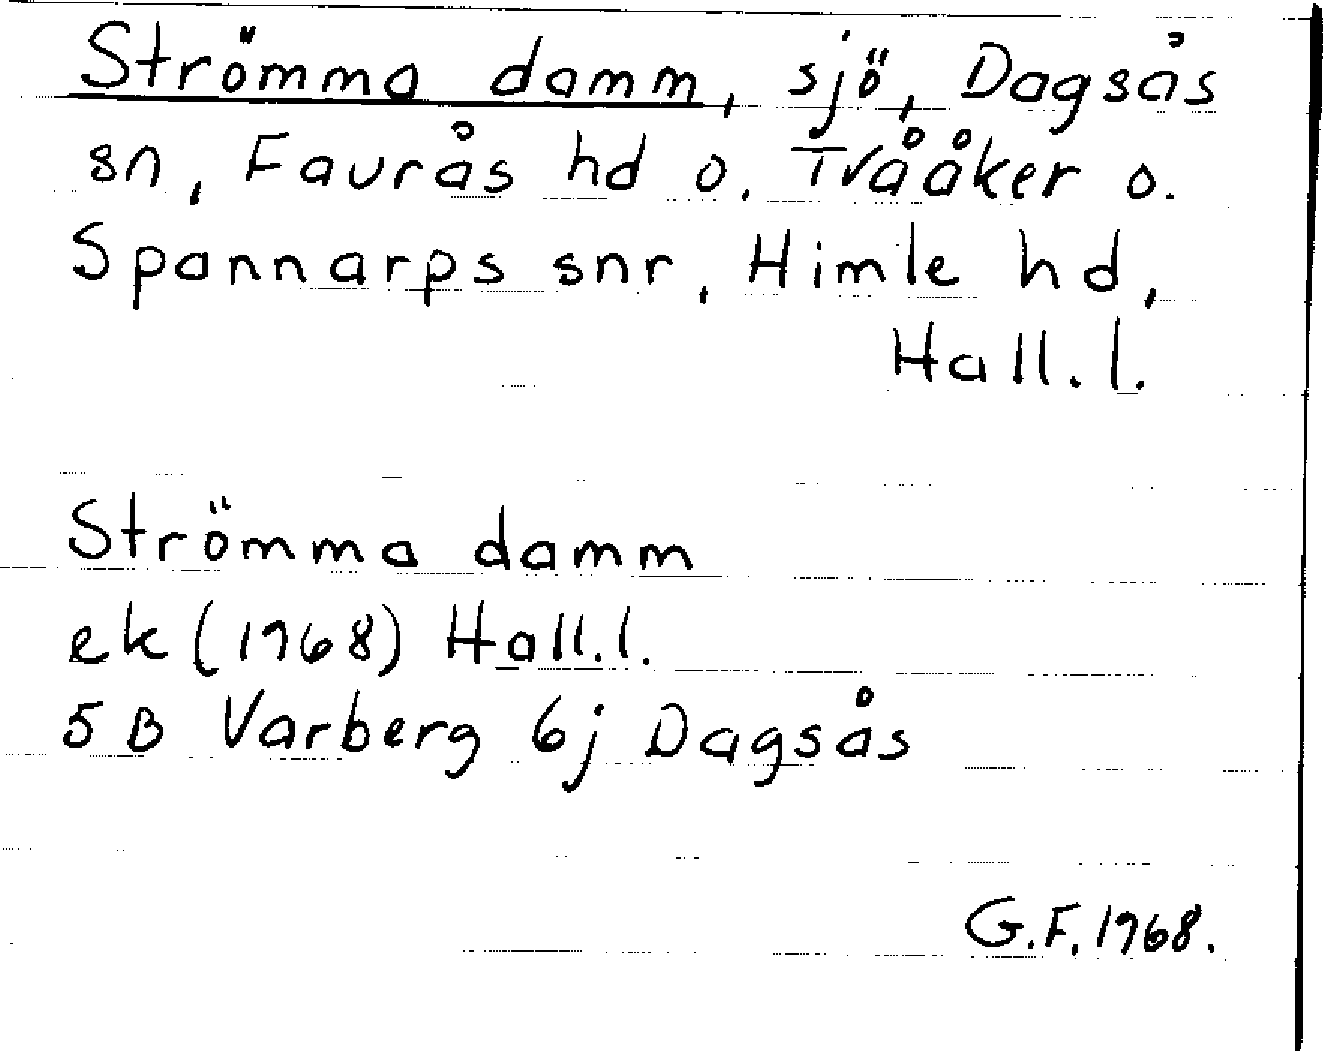 Strömma damm, sjö, Dagsås
sn, Faurås hd o. Tvååker o.
Spannarps snr, Himle hd,
Hall. l.
Strömma damm
ek (1968) Hall. l.
5B Varberg 6j Dagsås
G.F. 1968.